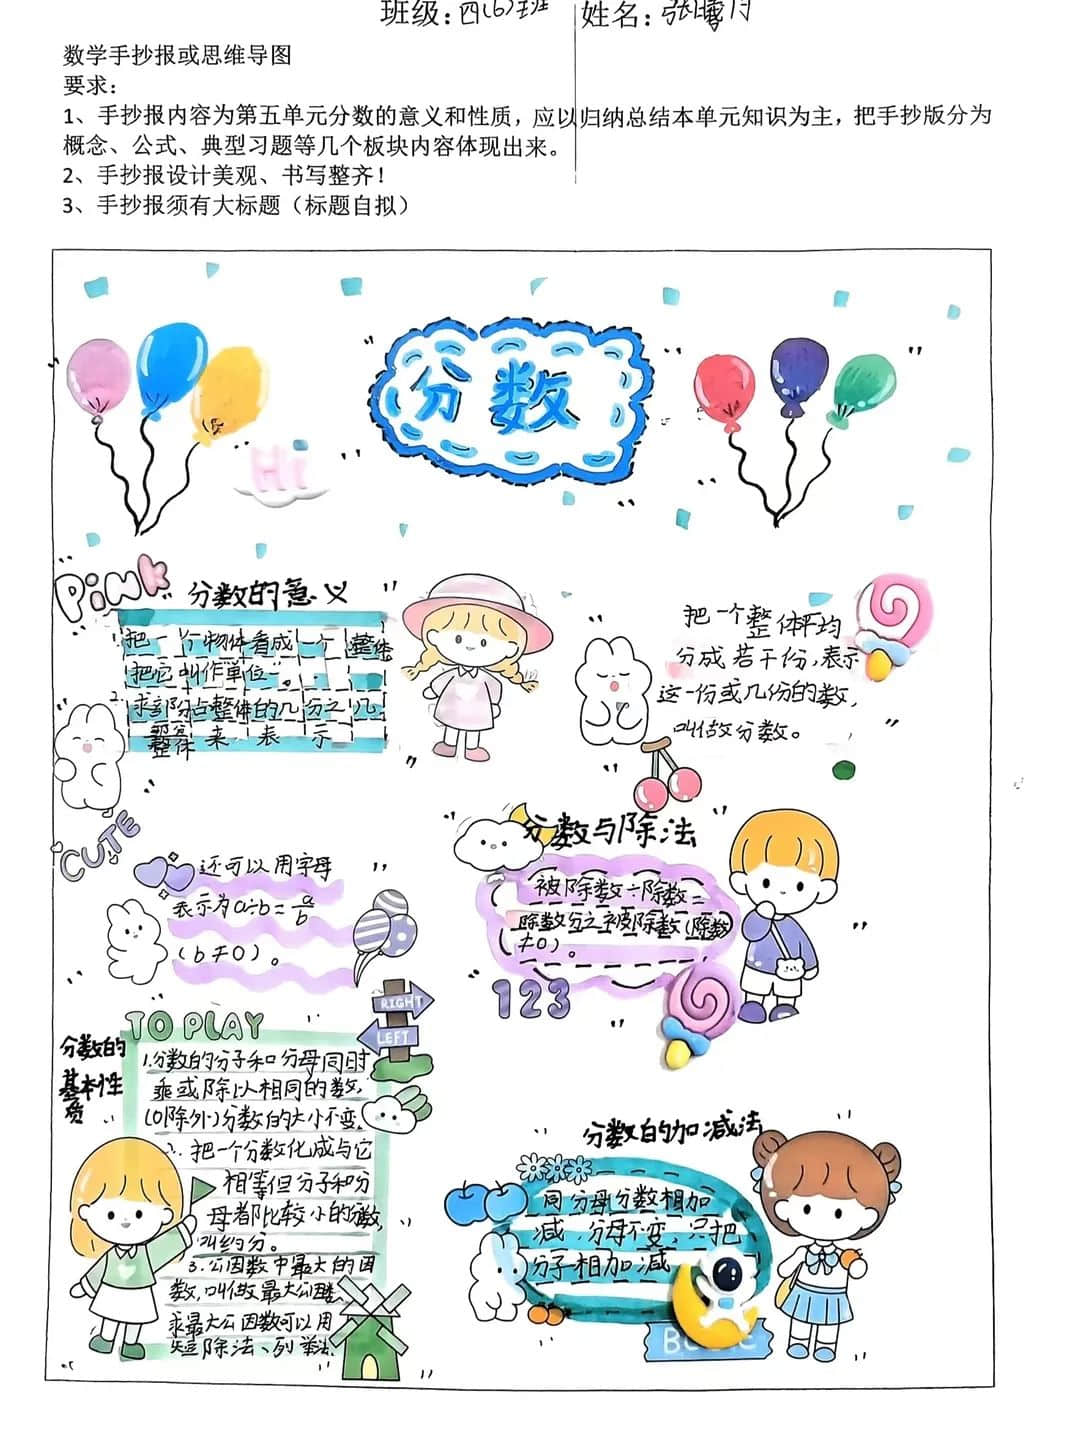 班级:四(6)班 姓名:张 月
数学手抄报或思维导图
要求:
1、手抄报内容为第五单元分数的意义和性质，应以归纳总结本单元知识为主，把手抄版分为
概念、公式、典型习题等几个板块内容体现出来。
2、手抄报设计美观、书写整齐！
3、手抄报须有大标题（标题自拟）
分数
Hi
PiNK
分数的意义
1.把一个物体看成一个整体
把它叫作单位“1”。
2.求部分占整体的几分之几
部分
整体 来表示
把一个整体平均
分成若干份,表示
这一份或几份的数,
叫做分数。
CUTE
还可以用字母
表示为a÷b=a/b
(b≠0)。
分数与除法
被除数÷除数=
除数分之被除数(除数
≠0)。
123
RIGHT
LEFT
TO PLAY
分数的
基本性
质
1.分数的分子和分母同时
乘或除以相同的数,
(0除外)分数的大小不变。
2.把一个分数化成与它
相等但分子和分
母都比较小的分数,
叫约分。
3.公因数中最大的因
数,叫做最大公因数、
求最大公因数可以用
短除法、列举法
分数的加减法
同分母分数相加
减,分母不变,只把
分子相加减